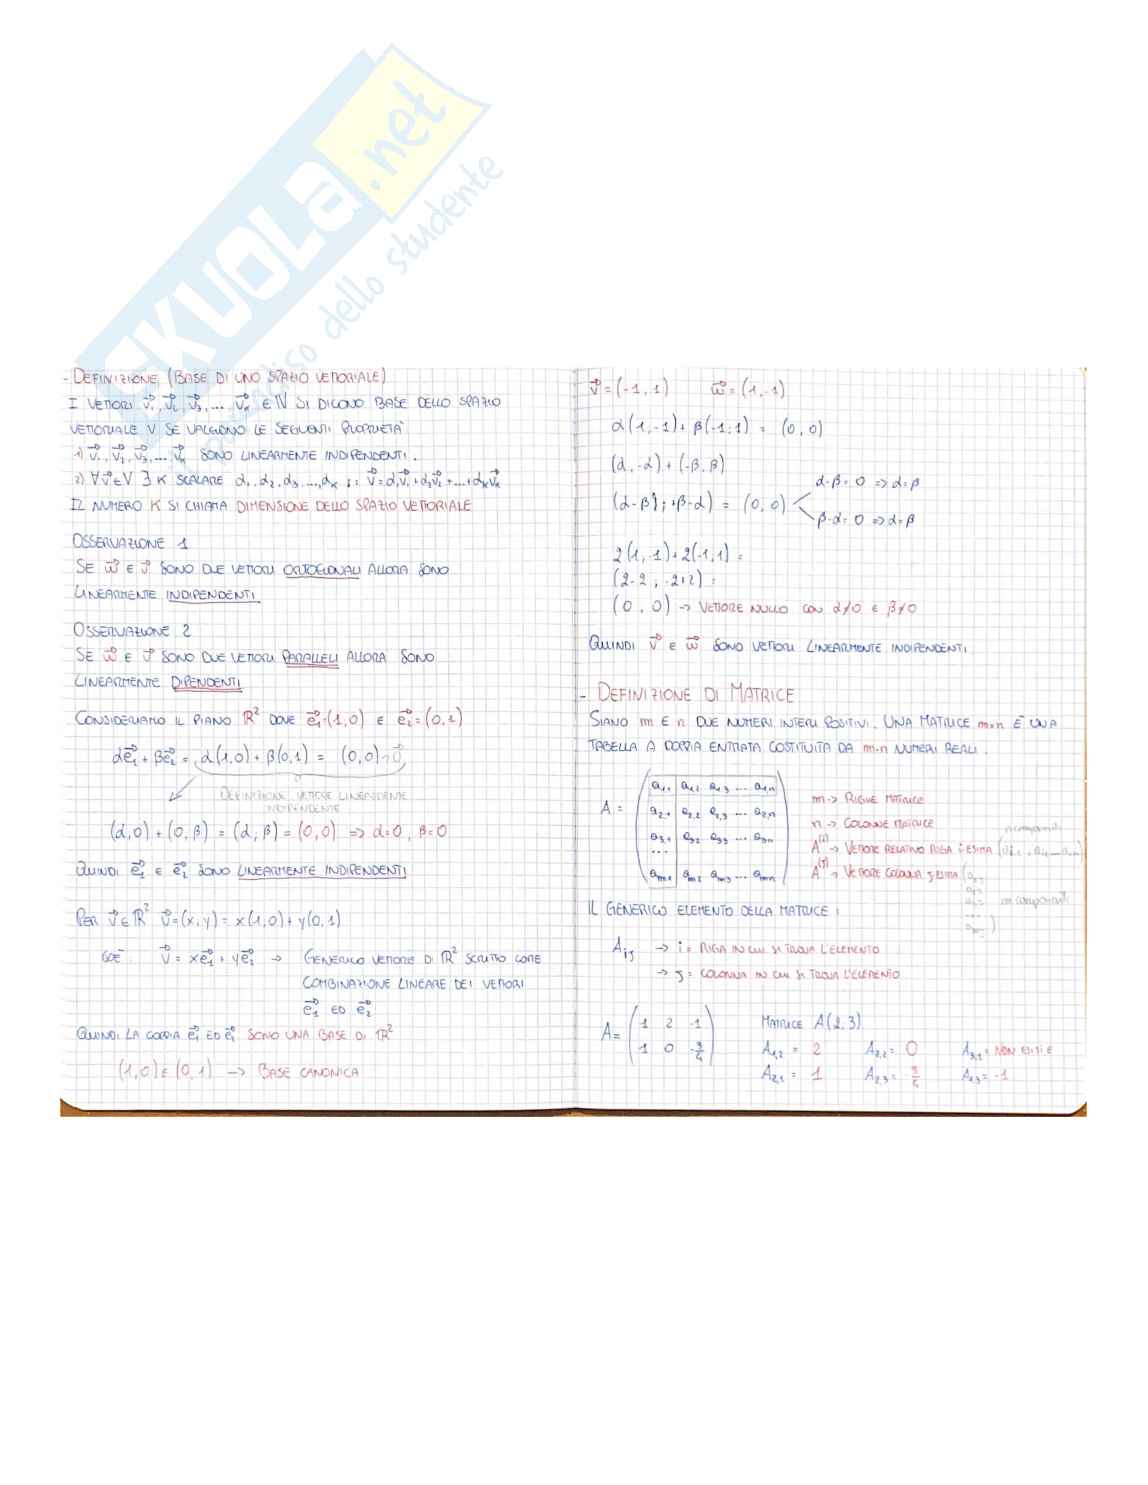 SKUOLA.net
paradiso dello studente
- DEFINIZIONE (BASE DI UNO SPAZIO VETTORIALE)
I VETTORI v⃗₁, v⃗₂, v⃗₃, ..., v⃗ₖ ∈ V SI DICONO BASE DELLO SPAZIO
VETTORIALE V SE VALGONO LE SEGUENTI PROPRIETÀ
1) v⃗₁, v⃗₂, v⃗₃, ..., v⃗ₖ SONO LINEARMENTE INDIPENDENTI.
2) ∀ v⃗ ∈ V ∃ K SCALARE α₁, α₂, α₃, ..., αₖ ; : v⃗ = α₁v⃗₁ + α₂v⃗₂ + ... + αₖv⃗ₖ
IL NUMERO K SI CHIAMA DIMENSIONE DELLO SPAZIO VETTORIALE
OSSERVAZIONE 1
SE w⃗ E v⃗ SONO DUE VETTORI ORTOGONALI ALLORA SONO
LINEARMENTE INDIPENDENTI
OSSERVAZIONE 2
SE w⃗ E v⃗ SONO DUE VETTORI PARALLELI ALLORA SONO
LINEARMENTE DIPENDENTI
CONSIDERIAMO IL PIANO ℝ² DOVE e⃗₁=(1,0) E e⃗₂=(0,1)
αe⃗₁ + βe⃗₂ = α(1,0) + β(0,1) = (0,0) = 0⃗
DEFINIZIONE VETTORE LINEARMENTE
INDIPENDENTE
(α,0) + (0,β) = (α,β) = (0,0) ⇒ α=0, β=0
QUINDI e⃗₁ E e⃗₂ SONO LINEARMENTE INDIPENDENTI
PER v⃗ ∈ ℝ² v⃗=(x,y) = x(1,0) + y(0,1)
CIOÈ: v⃗ = xe⃗₁ + ye⃗₂ → GENERICO VETTORE DI ℝ² SCRITTO COME
COMBINAZIONE LINEARE DEI VETTORI
e⃗₁ ED e⃗₂
QUINDI LA COPPIA e⃗₁ ED e⃗₂ SONO UNA BASE DI ℝ²
(1,0) E (0,1) → BASE CANONICA
v⃗ = (-1,1) w⃗ = (1,-1)
α(1,-1) + β(-1,1) = (0,0)
(α,-α) + (-β,β)
(α-β ; +β-α) = (0,0) α-β=0 ⇒ α=β
β-α=0 ⇒ α=β
2(1,-1) + 2(-1,1) =
(2-2, -2+2) =
(0,0) → VETTORE NULLO CON α≠0 E β≠0
QUINDI v⃗ E w⃗ SONO VETTORI LINEARMENTE INDIPENDENTI
- DEFINIZIONE DI MATRICE
SIANO m E n DUE NUMERI INTERI POSITIVI. UNA MATRICE m×n È UNA
TABELLA A DOPPIA ENTRATA COSTITUITA DA m·n NUMERI REALI.
A = ( a₁₁ a₁₂ a₁₃ ... a₁ₙ
a₂₁ a₂₂ a₂₃ ... a₂ₙ
a₃₁ a₃₂ a₃₃ ... a₃ₙ
...
aₘ₁ aₘ₂ aₘ₃ ... aₘₙ )
m → RIGHE MATRICE
n → COLONNE MATRICE
n componenti
A⁽ⁱ⁾ → VETTORE RELATIVO RIGA i-ESIMA (aᵢ₁, aᵢ₂ ... aᵢₙ)
A⁽ʲ⁾ → VETTORE COLONNA j-ESIMA
m componenti
IL GENERICO ELEMENTO DELLA MATRICE:
Aᵢⱼ → i = RIGA IN CUI SI TROVA L'ELEMENTO
→ j = COLONNA IN CUI SI TROVA L'ELEMENTO
A = ( 1 2 -1 MATRICE A(2,3)
1 0 -3/4 )
A₁,₂ = 2 A₂,₂ = 0 A₃,₁ = NON ESISTE
A₂,₁ = 1 A₂,₃ = 3/4 A₁,₃ = -1